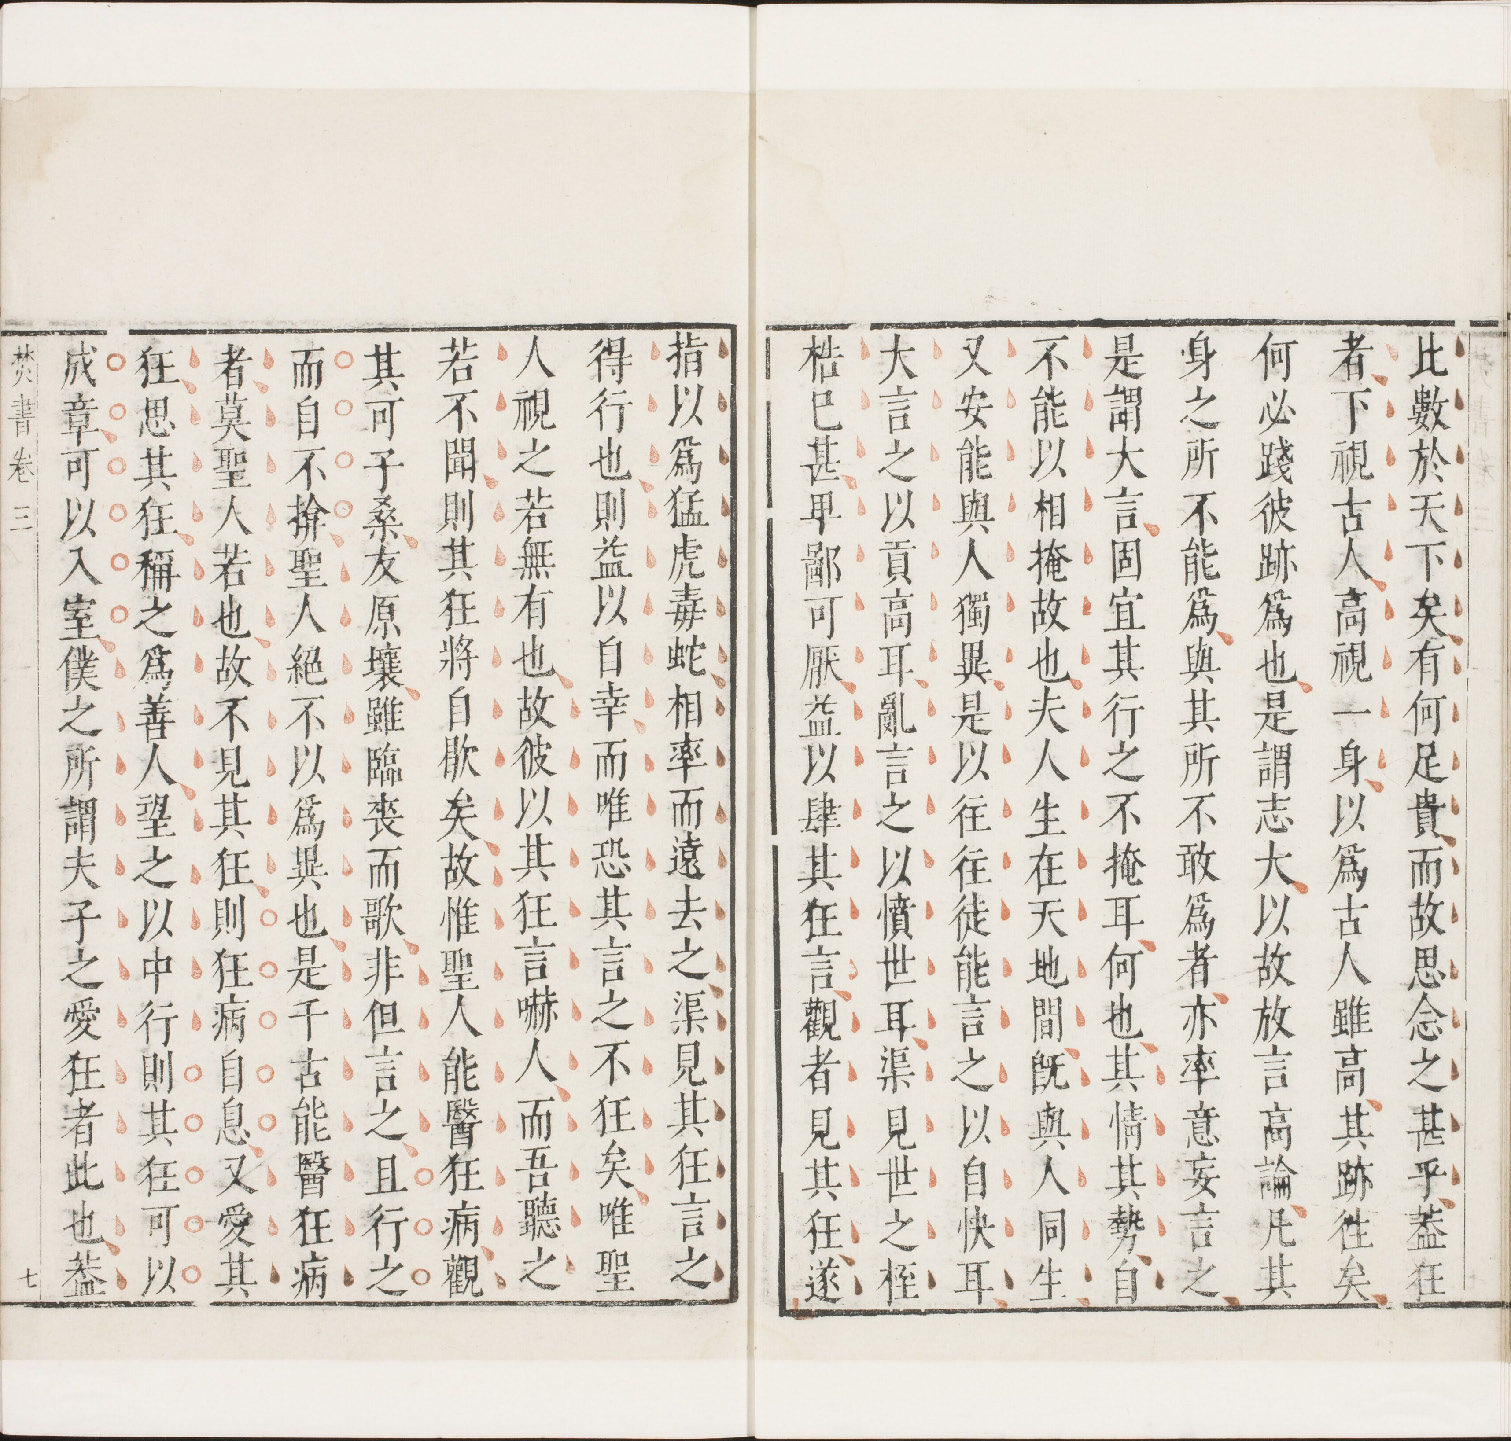 此數於天下矣有何足貴而故思念之甚乎葢狂
者下視古人高視一身以爲古人雖高其跡徃矣
何必踐彼跡爲也是謂志大以故放言高論凡其
身之所不能爲與其所不敢爲者亦率意妄言之
是謂大言固宜其行之不掩耳何也其情其勢自
不能以相掩故也夫人生在天地間旣與人同生
又安能與人獨異是以徃徃徒能言之以自快耳
大言之以貢高耳亂言之以憤世耳渠見世之桎
梏已甚卑鄙可厭益以肆其狂言觀者見其狂遂
指以爲猛虎毒蛇相率而遠去之渠見其狂言之
得行也則益以自幸而唯恐其言之不狂矣唯聖
人視之若無有也故彼以其狂言嚇人而吾聽之
若不聞則其狂將自歇矣故惟聖人能醫狂病觀
其可子桑友原壤雖臨喪而歌非但言之且行之
而自不揜聖人絕不以爲異也是千古能醫狂病
者莫聖人若也故不見其狂則狂病自息又愛其
狂思其狂稱之爲善人望之以中行則其狂可以
成章可以入室僕之所謂夫子之愛狂者此也葢
焚書卷三
七